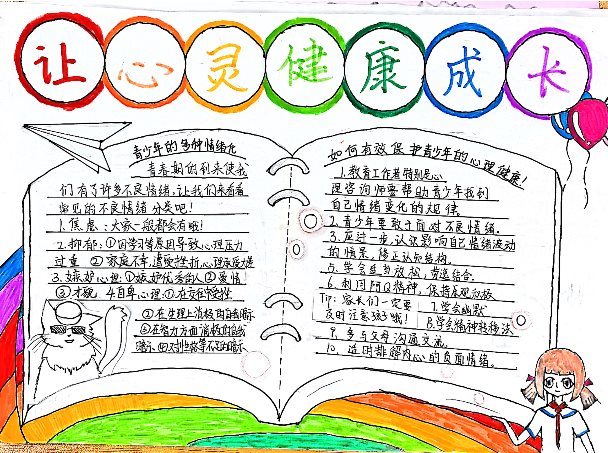 让心灵健康成长
青少年的多种情绪化
青春期的到来使我
们有了许多不良情绪,让我们来看看
常见的不良情绪分类吧!
1.焦虑:大家一般都会有哦!
2.抑郁:①因学习等原因导致心理压力
过重 ②家庭不幸,遭受挫折,心理承受力差
3.嫉妒心理:①嫉妒优秀的人 ②爱情!
③才貌 4自卑心理:①在交往
②在生理上消极的自我暗示
③在智力方面消极的自我
暗示 ④对性格等不足的暗示
如何有效保护青少年的心理健康!
1.教育工作者特别是心
理咨询师要帮助青少年找到
自己情绪变化的规律
2.青少年要敢于面对不良情绪.
3.应进一步认识影响自己情绪波动
的情景,修正认知结构.
5.学会自我放松,劳逸结合.
6.利用阿Q精神,保持乐观
Tip:家长们一定要
及时注意孩子哦!
7.学会幽默
8.学会精神转移法
9.多与父母沟通交流.
10.适时排解内心的负面情绪.